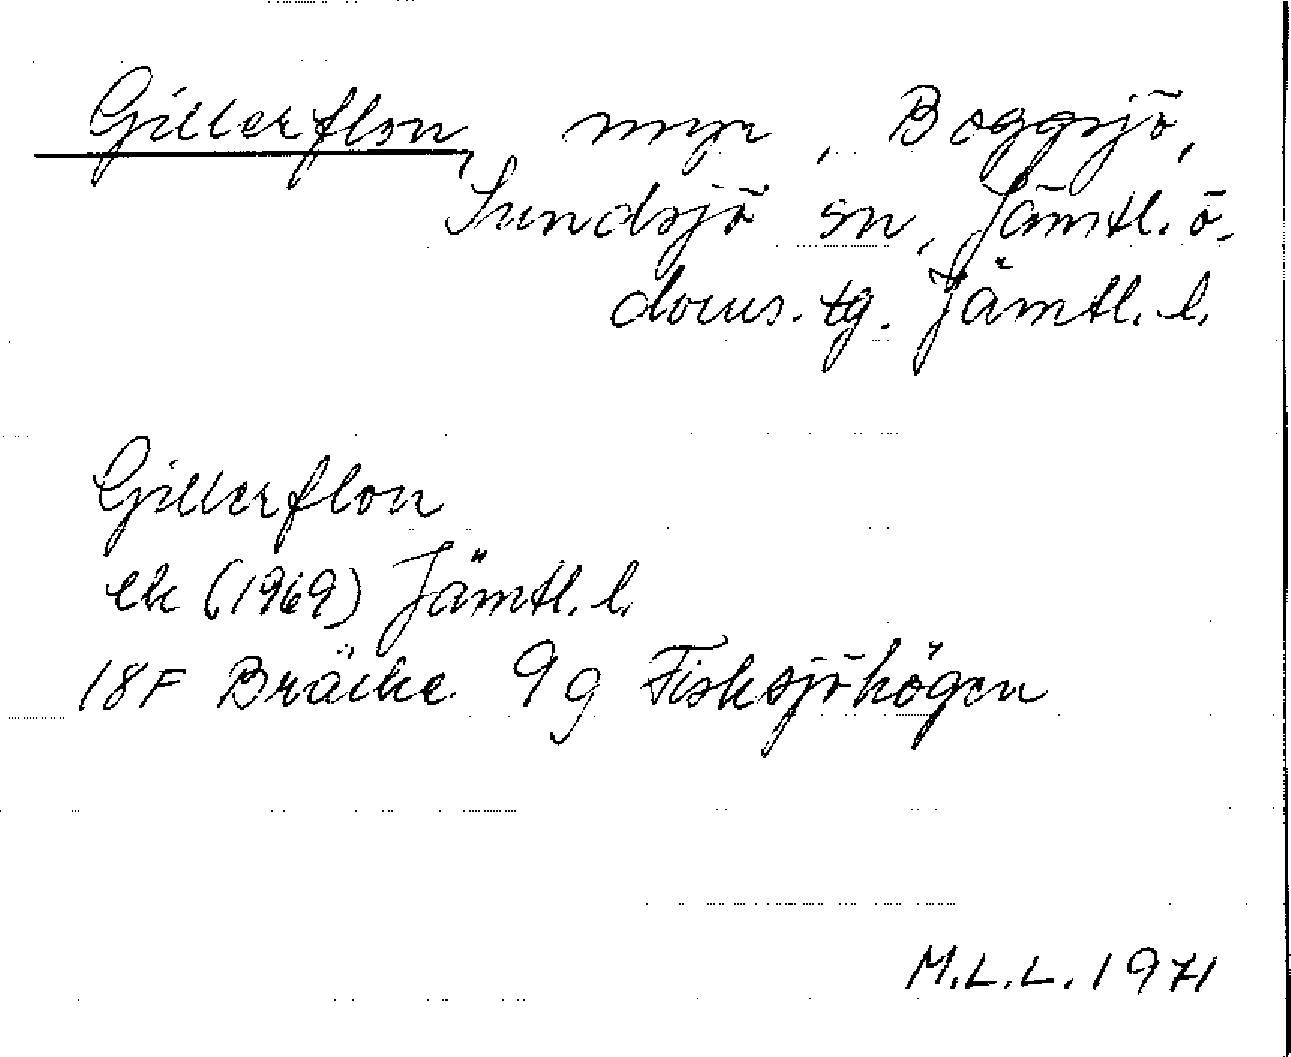 Gillerflon, myr, Boggsjö,
Sundsjö sn, Jämtl. ö.
doms. tg. Jämtl. l.
Gillerflon
ek (1969) Jämtl. l.
18F Bräcke 9g Fisksjöhögen
M.L.L. 1971